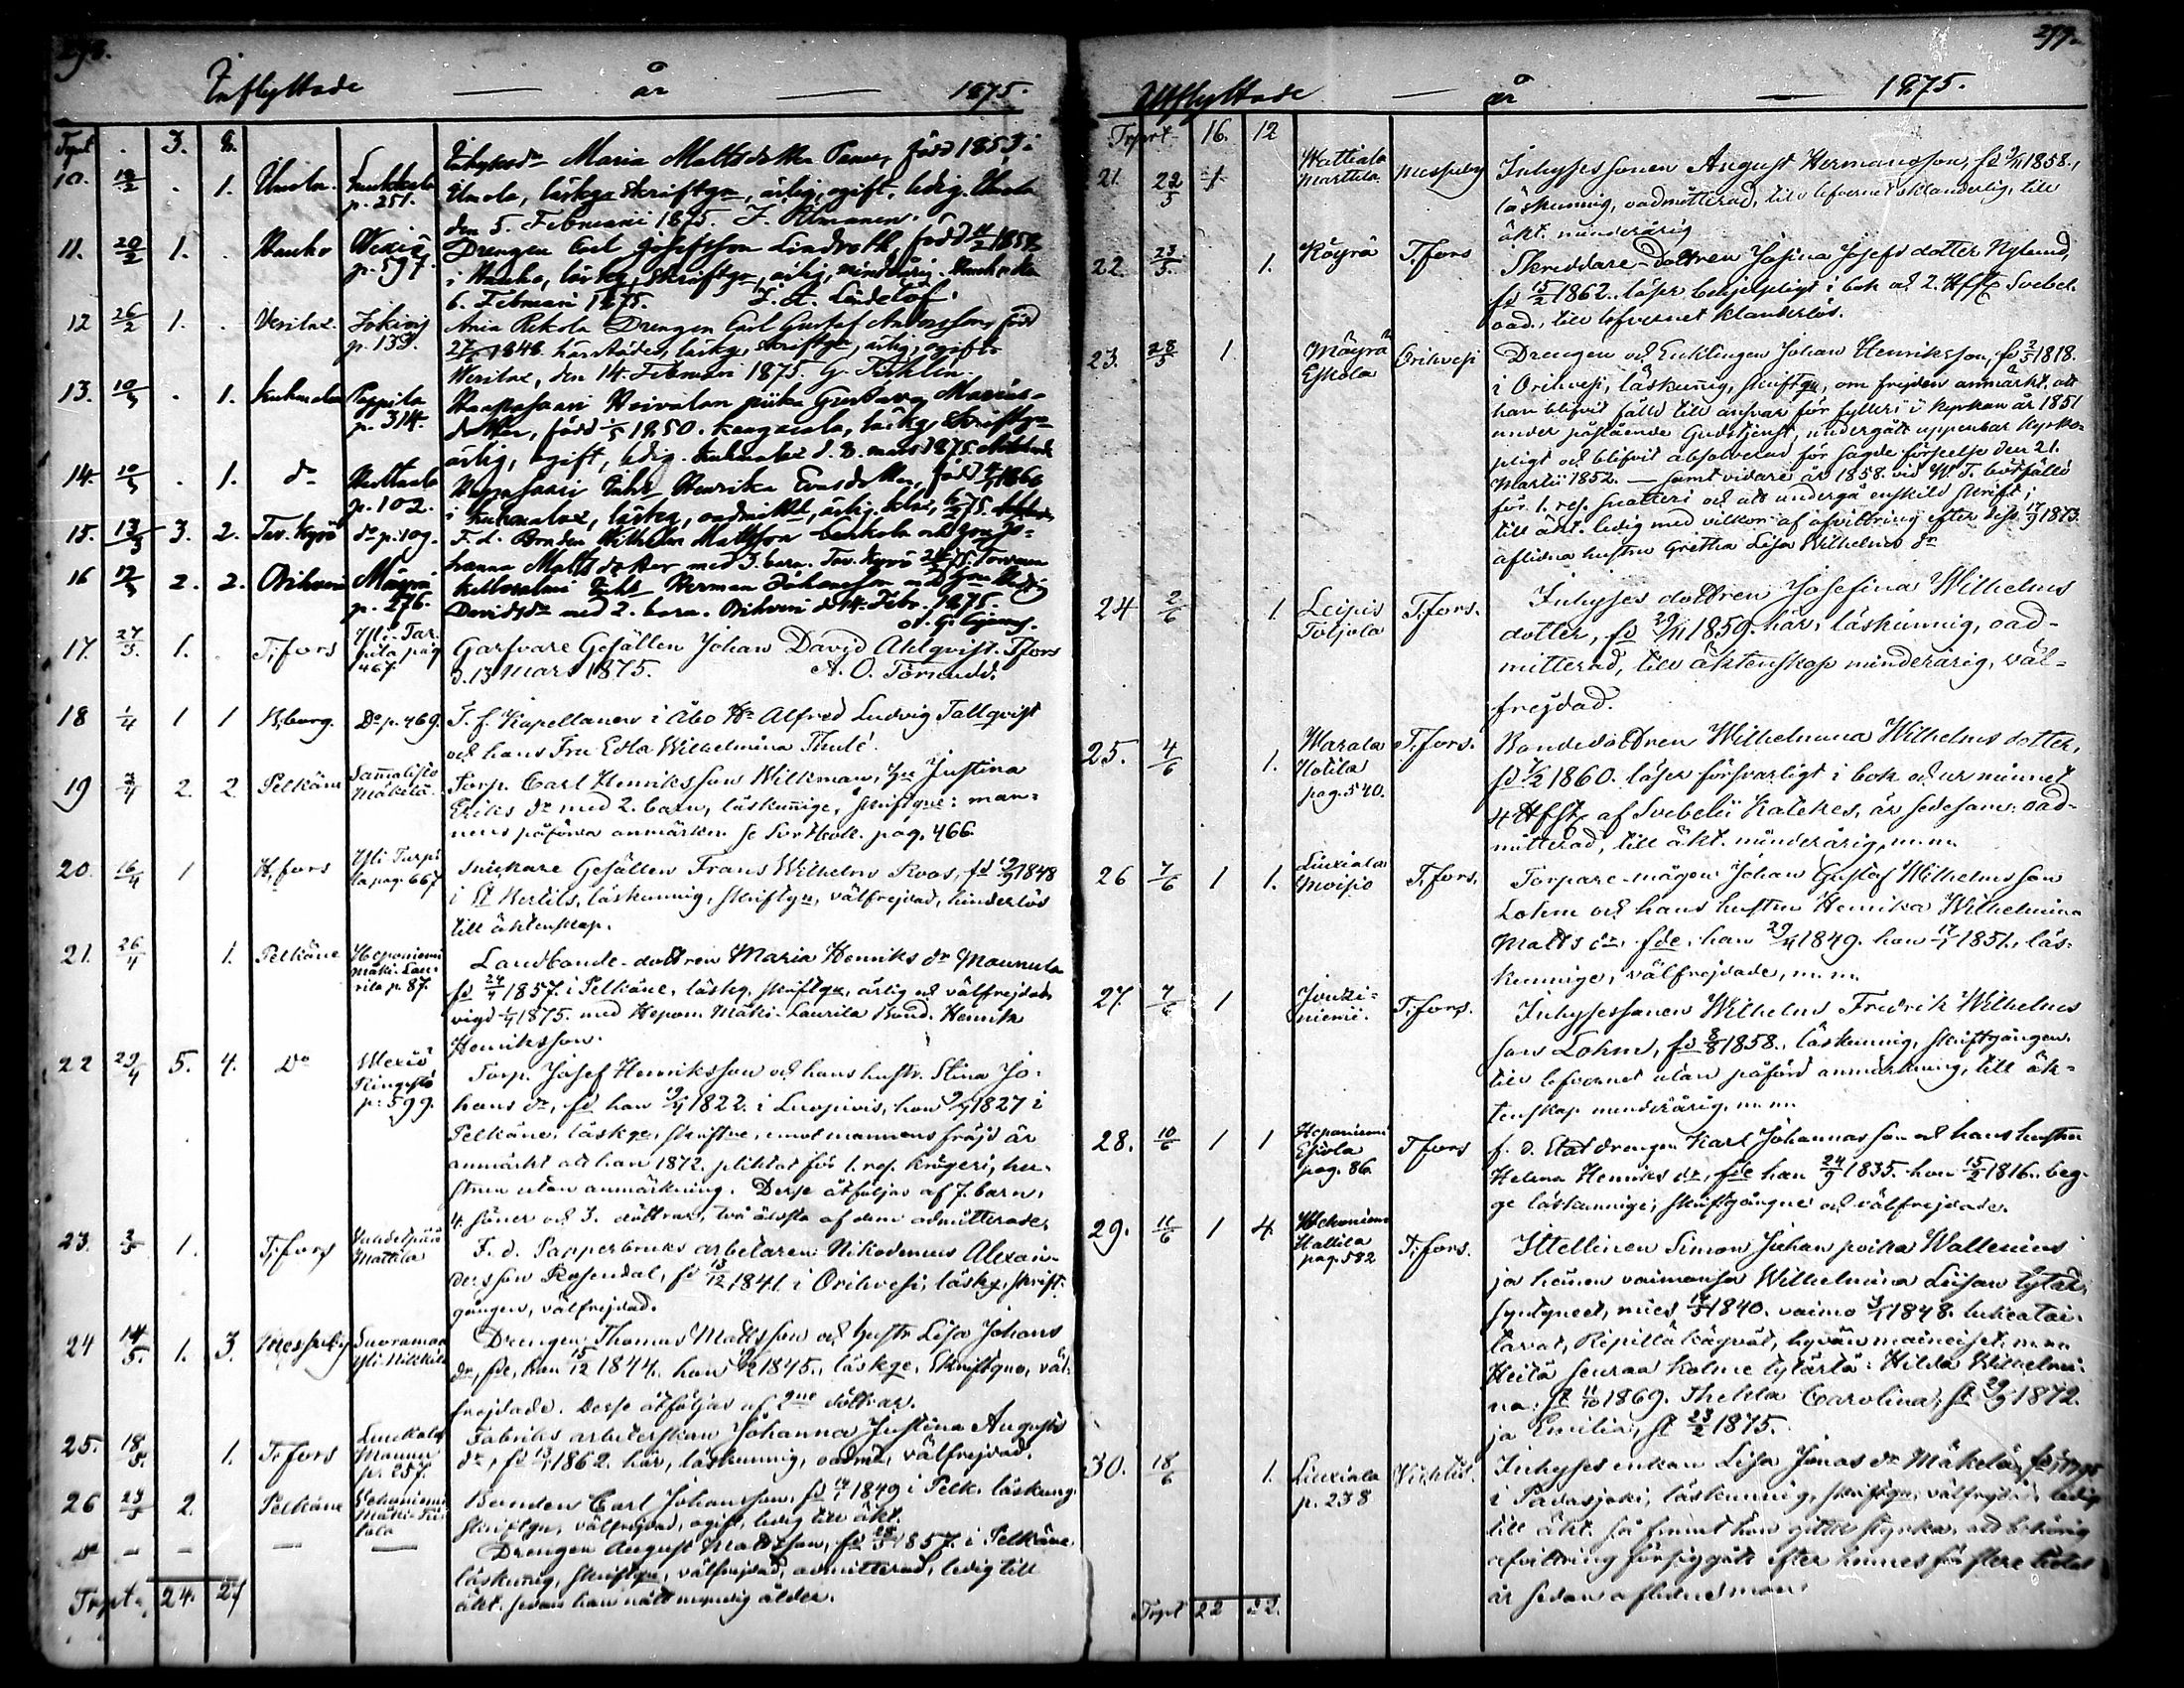 298.
Inflyttade — år — 1875.
Trpt . 3. 8.
10. 19/2 . 1. Umola. Luukkala p. 251.
Inhyses dr Maria Matts dotter, född 1853 i
Umola, läskg skriftgn, ärlig, ogift, ledig. Umola
den 5. Februarii 1875.
11. 20/2 1. . Hauho Wexiö p. 597.
Drengen Carl Josefsson Lindroth, född
i Hauho, läskg, skriftgn, ärlig, minderårig. Hauho den
6. Februari 1875. Lindelöf.
12 26/2 1. . Vesilax. p. 139.
Drengen Carl Gustaf Andersson, född
1848 härstädes, läskg, skriftgn, ärlig, ogift.
Wesilax, den 14. Februari 1875.
13. 10/3 . 1. Kuhmalax Pappila p. 314.
piika Gustava Mariæ-
dotter, född 1850. läskg, skriftgn
ärlig, ogift, ledig. Kuhmalax d. 3. mars 1875.
14. 10/3 . 1. do p. 102.
Inhs Henrika Evas dotter, född
i Kuhmalax, läskg, oadmittd, ärlig.
15. 13/3 3. 2. Tav. Kyrö do p. 109.
F. d. Bonden Wilhelm Mattsson och
hanna Matts dotter med 3. barn. Tav. Kyrö
16 17/3 2. 2. Orihvesi Mäyrä p. 276.
Inhs Herman Johansson
Davids dr med 2. barn. Orihvesi d. 14. Febr. 1875.
17. 27/3. 1. . T:fors Yli-Tarpila pag 467
Garfvare Gesällen Johan David Ahlqvist. Tfors
d. 13 Mars 1875. A. O. Törnudd.
18 1/4 1 1 W;borg. Do p. 469.
T. f. Kapellanen i Åbo Hr Alfred Ludvig Tallqvist
och hans Fru Edla Wilhelmina Thulé.
19 3/4 2. 2 Pelkäne Sammalisto Mäkelä
Torp. Carl Henriksson Wilkman, Hu Justina
Eriks dr med 2. barn, läskunnige, skriftgne: man-
nens påförda anmärkn. se pag. 466.
20. 16/4 1 H,fors Yli Tarpila pag. 667
Snickare Gesällen Frans Wilhelm Roos, fd 1848
i St Bertils, läskunnig, skriftgn, välfrejdad, hinderlös
till äktenskap.
21. 26/4 1. Pelkäne Heponiemi Mäki-Laurila p. 87.
Landbonde-dottren Maria Henriks dr Maunula
fd 1857. i Pelkäne, läskg. skriftgn, ärlig och välfrejdad
vigd 1875. med Hepom. Mäki-Laurila Bond. Henrik
Henriksson.
22 29/4 5. 4. Do Wexiö p. 599.
Torp. Josef Henriksson och hans hustr. Stina Jo-
hans dr, fd han 1822. i Luopiois, hon 1827 i
Pelkäne, läskge, skriftne, emot mannens fräjd är
anmärkt att han 1872. pliktat för 1. res. krögeri, hu-
strun utan anmärkning. Desse åtföljas af 7. barn,
4. söner och 3. döttrar, två äldsta af dem admitterade.
23. 3/5 1. T;fors Mattila
F. d. Papperbruks arbetaren Nikodemus Alexan-
dersson Rosendal, fd 13/12 1841. i Orihvesi, läskg, skrift-
gången, välfrejdad.
24 14/5. 1. 3. Messuby Suoramaa Yli-Nikkilä
Drengen Thomas Mattsson och hustr Lisa Johans
dr, fde, han 15/12 1844. hon 1845., läskge, skriftgne, väl-
frejdade. Desse åtföljas af 2ne döttrar.
25. 18/5. 1. T:fors Luukkala p. 257.
Fabriks arbeterskan Johanna Justina Augusts
dr, fd 1862. här, läskunnig, oadmd, välfrejdad.
26 23/5 2. Pelkäne
Bonden Carl Johansson, fd 1849 i Pelk. läskung.
skriftgn, välfrejdad, ogift, ledig till äkt.
do — — — —
Drengen August Mattsson, fd 1857. i Pelkäne,
läskunnig, skriftgn, välfrejdad, admitterad, ledig till
äkt. sedan han nått myndig ålder.
Trpt. 24. 27
299.
Utflyttade — år — 1875.
Trport 16. 12
21. 22/5 1. Marttila Messuby
Inhysessonen August Hermansson, fd 1858.,
läskunnig, oadmitterad, till lefvernet oklanderlig, till
äkt. minderårig
22. 23/5. 1. Köyrä T:fors
Skreddare-dottren Josina Josefs dotter Nylund,
fd 15/2 1862. läser behjelpligt i bok och 2. Hfst Svebel.
oad., till lefvernet klanderlös.
23. 28/5 1. Mäyrä Eskola Orihvesi
Drengen och Enklingen Johan Henriksson, fd 2/5 1818.
i Orihvesi, läskunnig, skriftgn, om frejden anmärkt, att
han blifvit fälld till ansvar för fylleri i kyrkan år 1851
under påstående Gudstjenst, undergått uppenbar kyrko-
pligt och blifvit absolverad för sagde förseelse den 21.
Martii 1852. — samt vidare år 1858. vid W. T. bötfälld
för 1. res. snatteri och att undergå enskild skrift;
till äkt. ledig med vilkor af afvittring efter dess 1873.
aflidna hustru Gretha Lisa Wilhelms dr
24 2/6 1 Leipis Toljola T:fors.
Inhyses dottren Josefina Wilhelms
dotter, fd 29/11 1859. här, läskunnig, oad-
mitterad, till äktenskap minderårig, väl-
frejdad.
25. 4/6 1. Warala Hotila pag. 540. T:fors.
Bondedottren Wilhelmina Wilhelms dotter,
fd 1860. läser försvarligt i bok och ur minnet
4 Hfst af Svebelii Katekes, är sedesam: oad-
mitterad, till äkt. minderårig, m. m.
26 7/6 1 1. Liuxiala Moisio T:fors.
Torpare-mågen Johan Gustaf Wilhelmsson
Lohm och hans hustru Henrika Wilhelmina
Matts dr, fde, han 1849. hon 1851., läs-
kunnige, välfrejdade, m. m.
27. 7/6 1 Jouti- niemi. T:fors.
Inhysessonen Wilhelm Fredrik Wilhelms
son Lohm, fd 8/8 1858., läskunnig, skriftgången,
till lefvernet utan påförd anmärkning, till äk-
tenskap minderårig, m. m.
28. 10/6 1 1 Heponiemi Eskola pag. 86. T fors
f. d. Statdrengen Karl Johannesson och hans hustru
Helena Henriks dr, fde han 24/9 1835. hon 15/2 1816. beg-
ge läskunnige, skriftgångne och välfrejdade.
29. 11/6 1 4. Hallila pag. 582 T:fors.
Itellinen Simon Juhan poika Wallenius
ja hänen vaimonsa Wilhelmina Liisan tytär,
syntyneet, mies 1840. vaimo 1848. lukeatai-
tavat, Ripillä käyvät, hyvän maineiset, m. m.
Heitä seuraa kolme tytärtä: Hilda Wilhelmi-
na, st 11/10 1869. Thekla Carolina, st 1872.
ja Emilia, st 23/2 1875.
30. 18/6 1. Liuxiala p. 238
Inhyses enkan Lisa Jonas dr Mäkelä,
i Padasjoki, läskunnig, skriftgn, välfrejdad, ledig
till äkt. så framt hon gitter styrka, att behörig
afvittring försiggått efter hennes för flere
år sedan aflidne man.
Trpt 22 22.